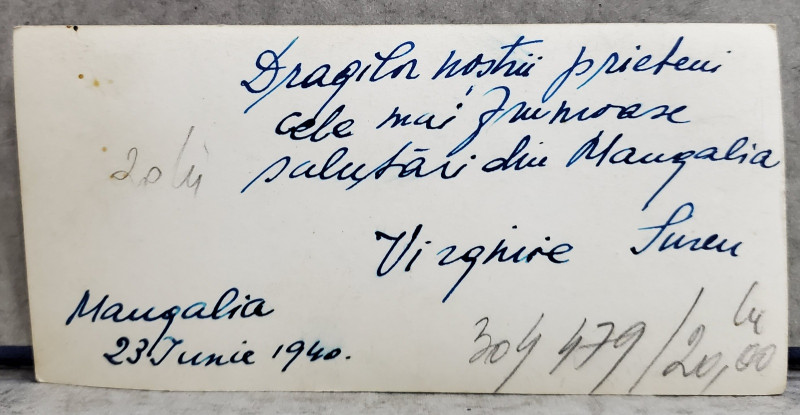 Dragilor noștrii prieteni
cele mai frumoase
salutări din Mangalia
Virginie Suren
20 lei
Mangalia
23 Iunie 1940.
304 479 / 20,00 lei